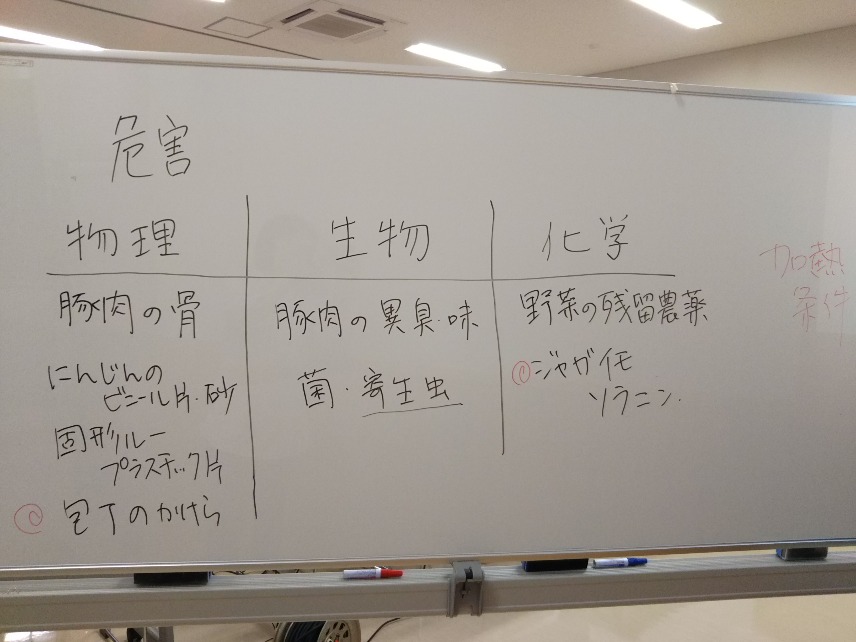 危害
物理
生物
化学
豚肉の骨
にんじんの
ビニール片・砂
固形ルー
プラスチック片
包丁のかけら
豚肉の異臭・味
菌・寄生虫
野菜の残留農薬
ジャガイモ
ソラニン.
加熱
条件